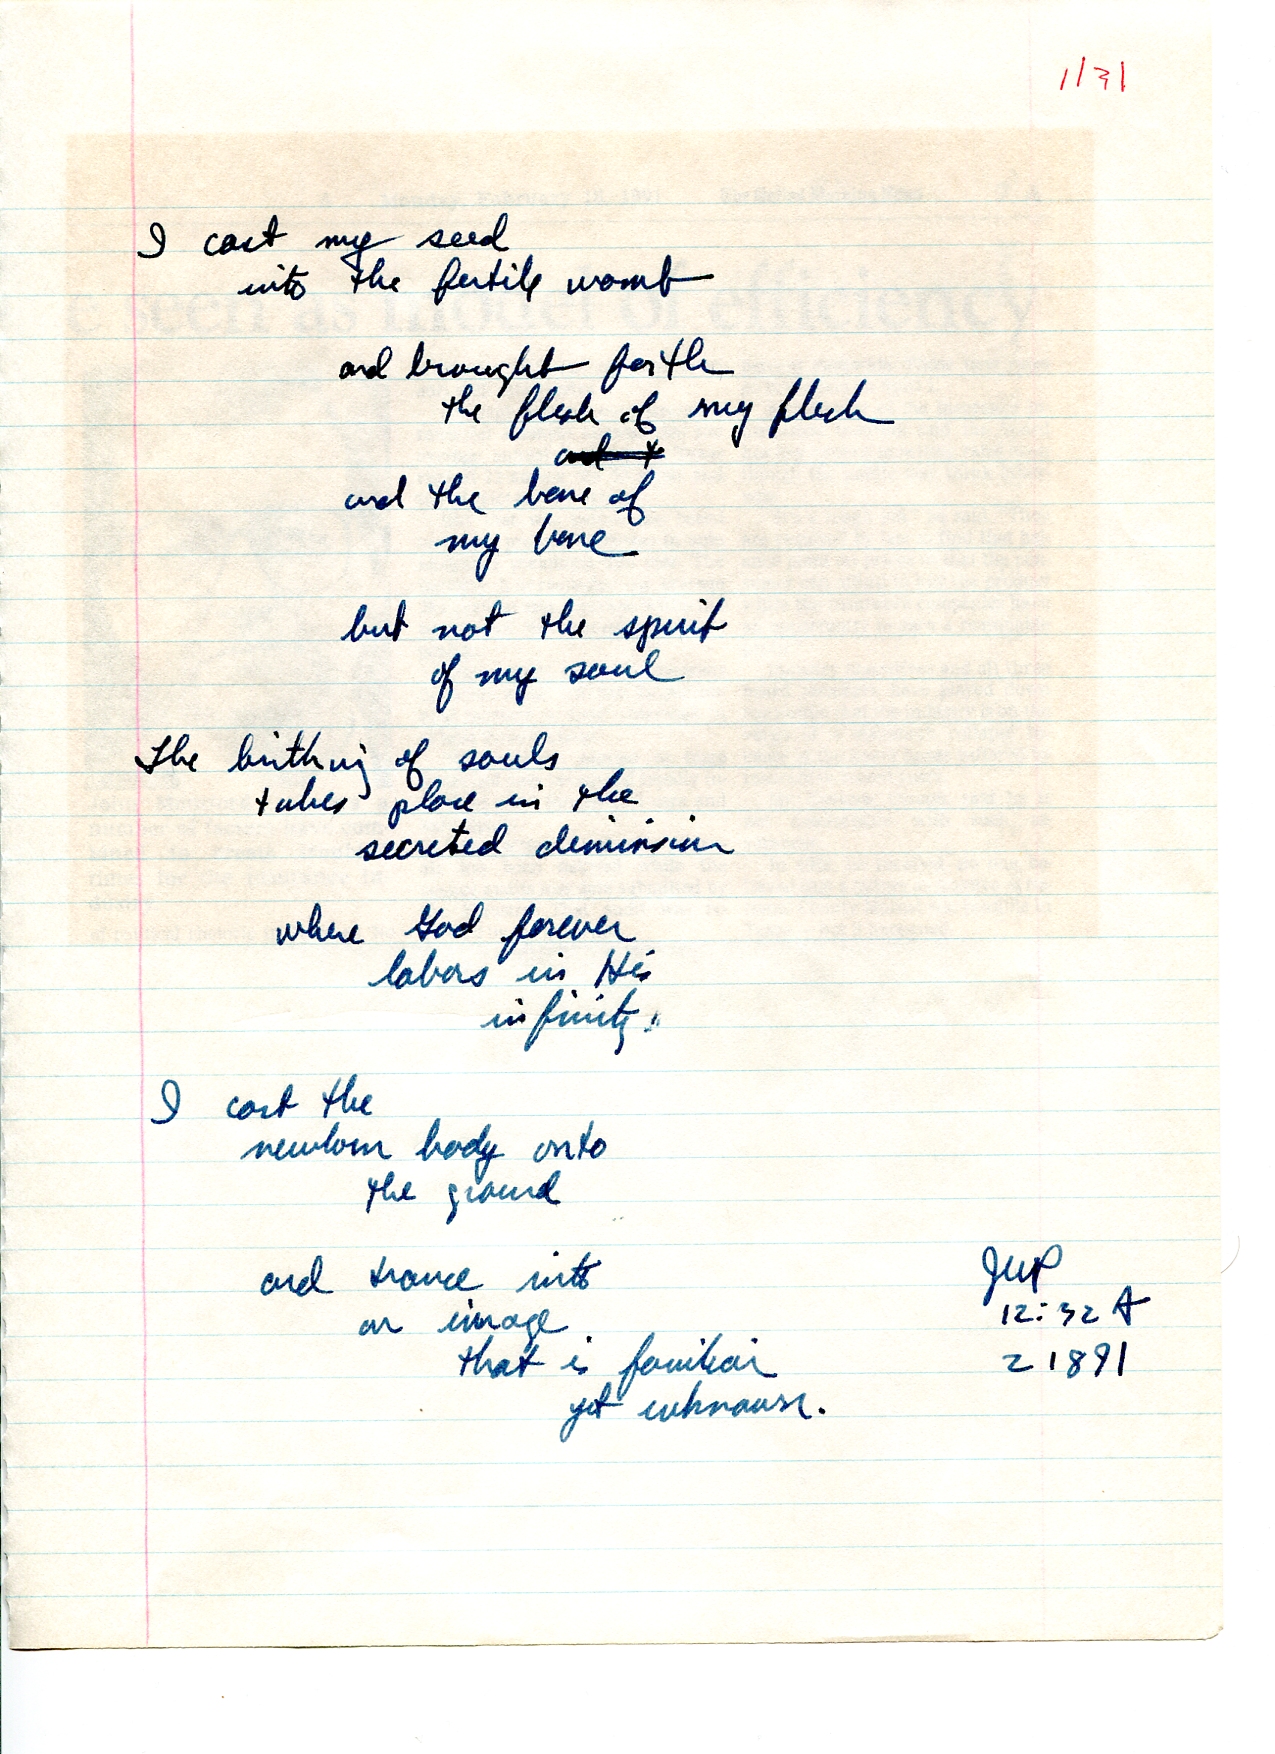 1/31
I cast my seed
into the fertile womb
and brought forth
the flesh of my flesh
and t
and the bone of
my bone
but not the spirit
of my soul
The birthing of souls
takes place in the
secreted diminsion
where God forever
labors in His
infinity.
I cast the
newborn body onto
the ground
and trance into
an image
that is familiar
yet unknown.
JWP
12:32 A
2 18 91
seen as model of efficiency